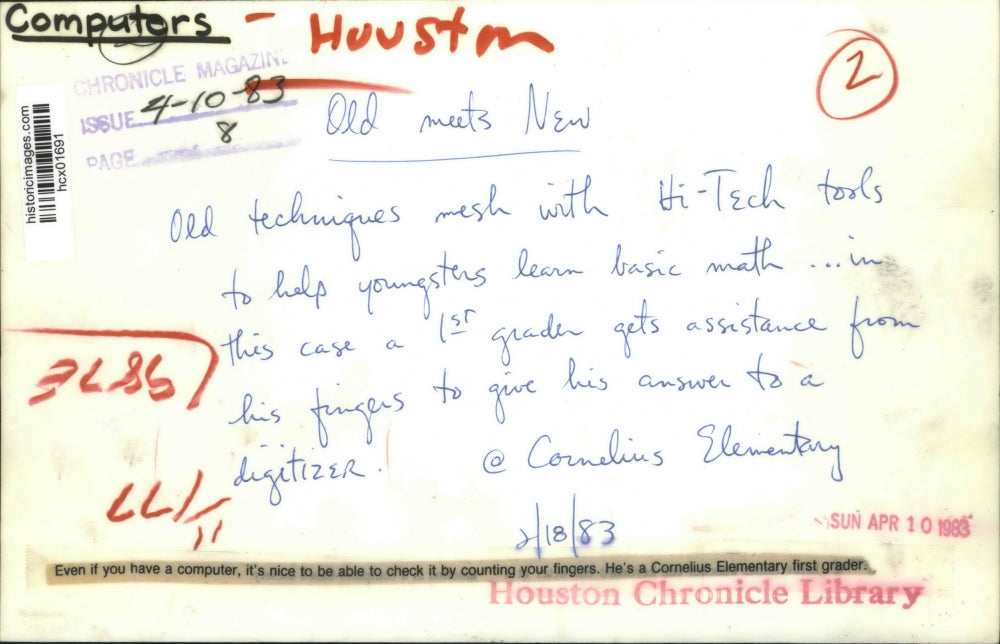 Computers - Houston
2
CHRONICLE MAGAZINE
ISSUE 4-10-83
PAGE 8
historicimages.com
hcx01691
Old meets New
Old techniques mesh with Hi-Tech tools
to help youngsters learn basic math ...in
this case a 1st grader gets assistance from
his fingers to give his answer to a
digitizer. @ Cornelius Elementary
2/18/83
SUN APR 10 1983
Even if you have a computer, it's nice to be able to check it by counting your fingers. He's a Cornelius Elementary first grader.
Houston Chronicle Library